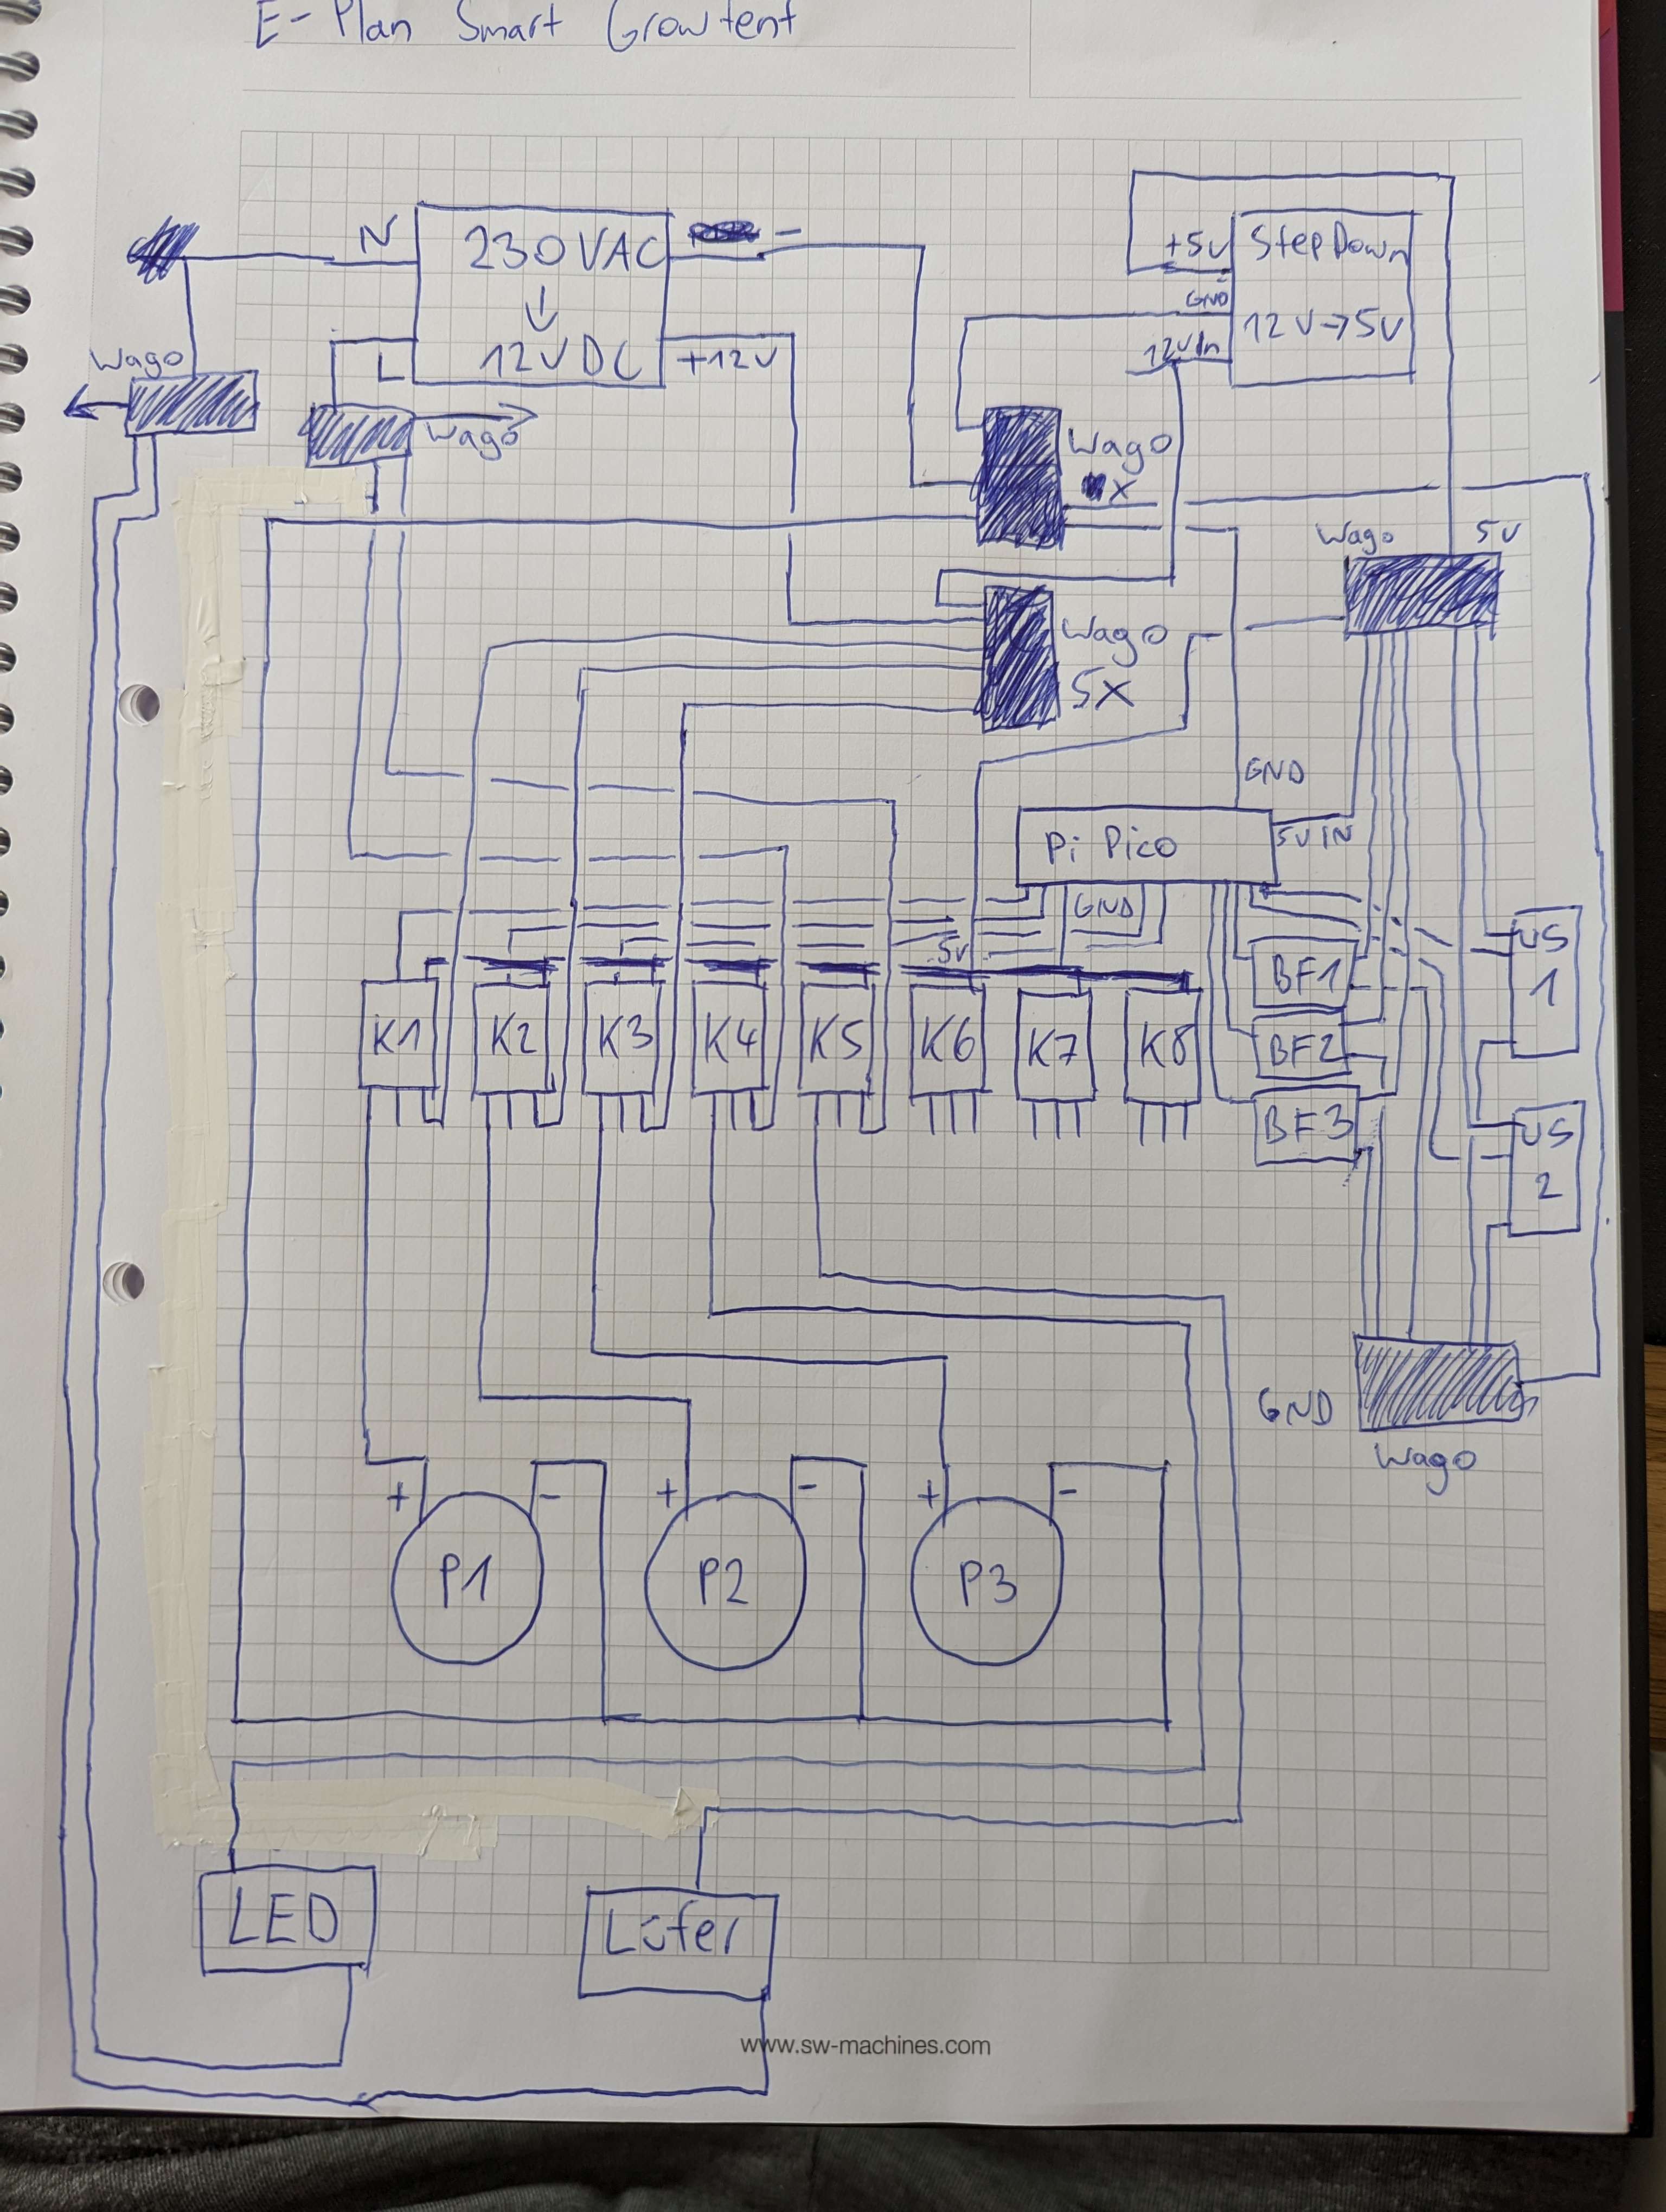 E-Plan Smart Growtent
N
230VAC
↓
12VDC
-
L
+12V
+5V
GND
12V In
StepDown
12V→5V
Wago
Wago
Wago
X
Wago
5V
Wago
5X
GND
Pi Pico
5V IN
GND
5V
K1
K2
K3
K4
K5
K6
K7
K8
BF1
BF2
BF3
US
1
US
2
GND
Wago
+
-
+
-
+
-
P1
P2
P3
LED
Lüfer
www.sw-machines.com